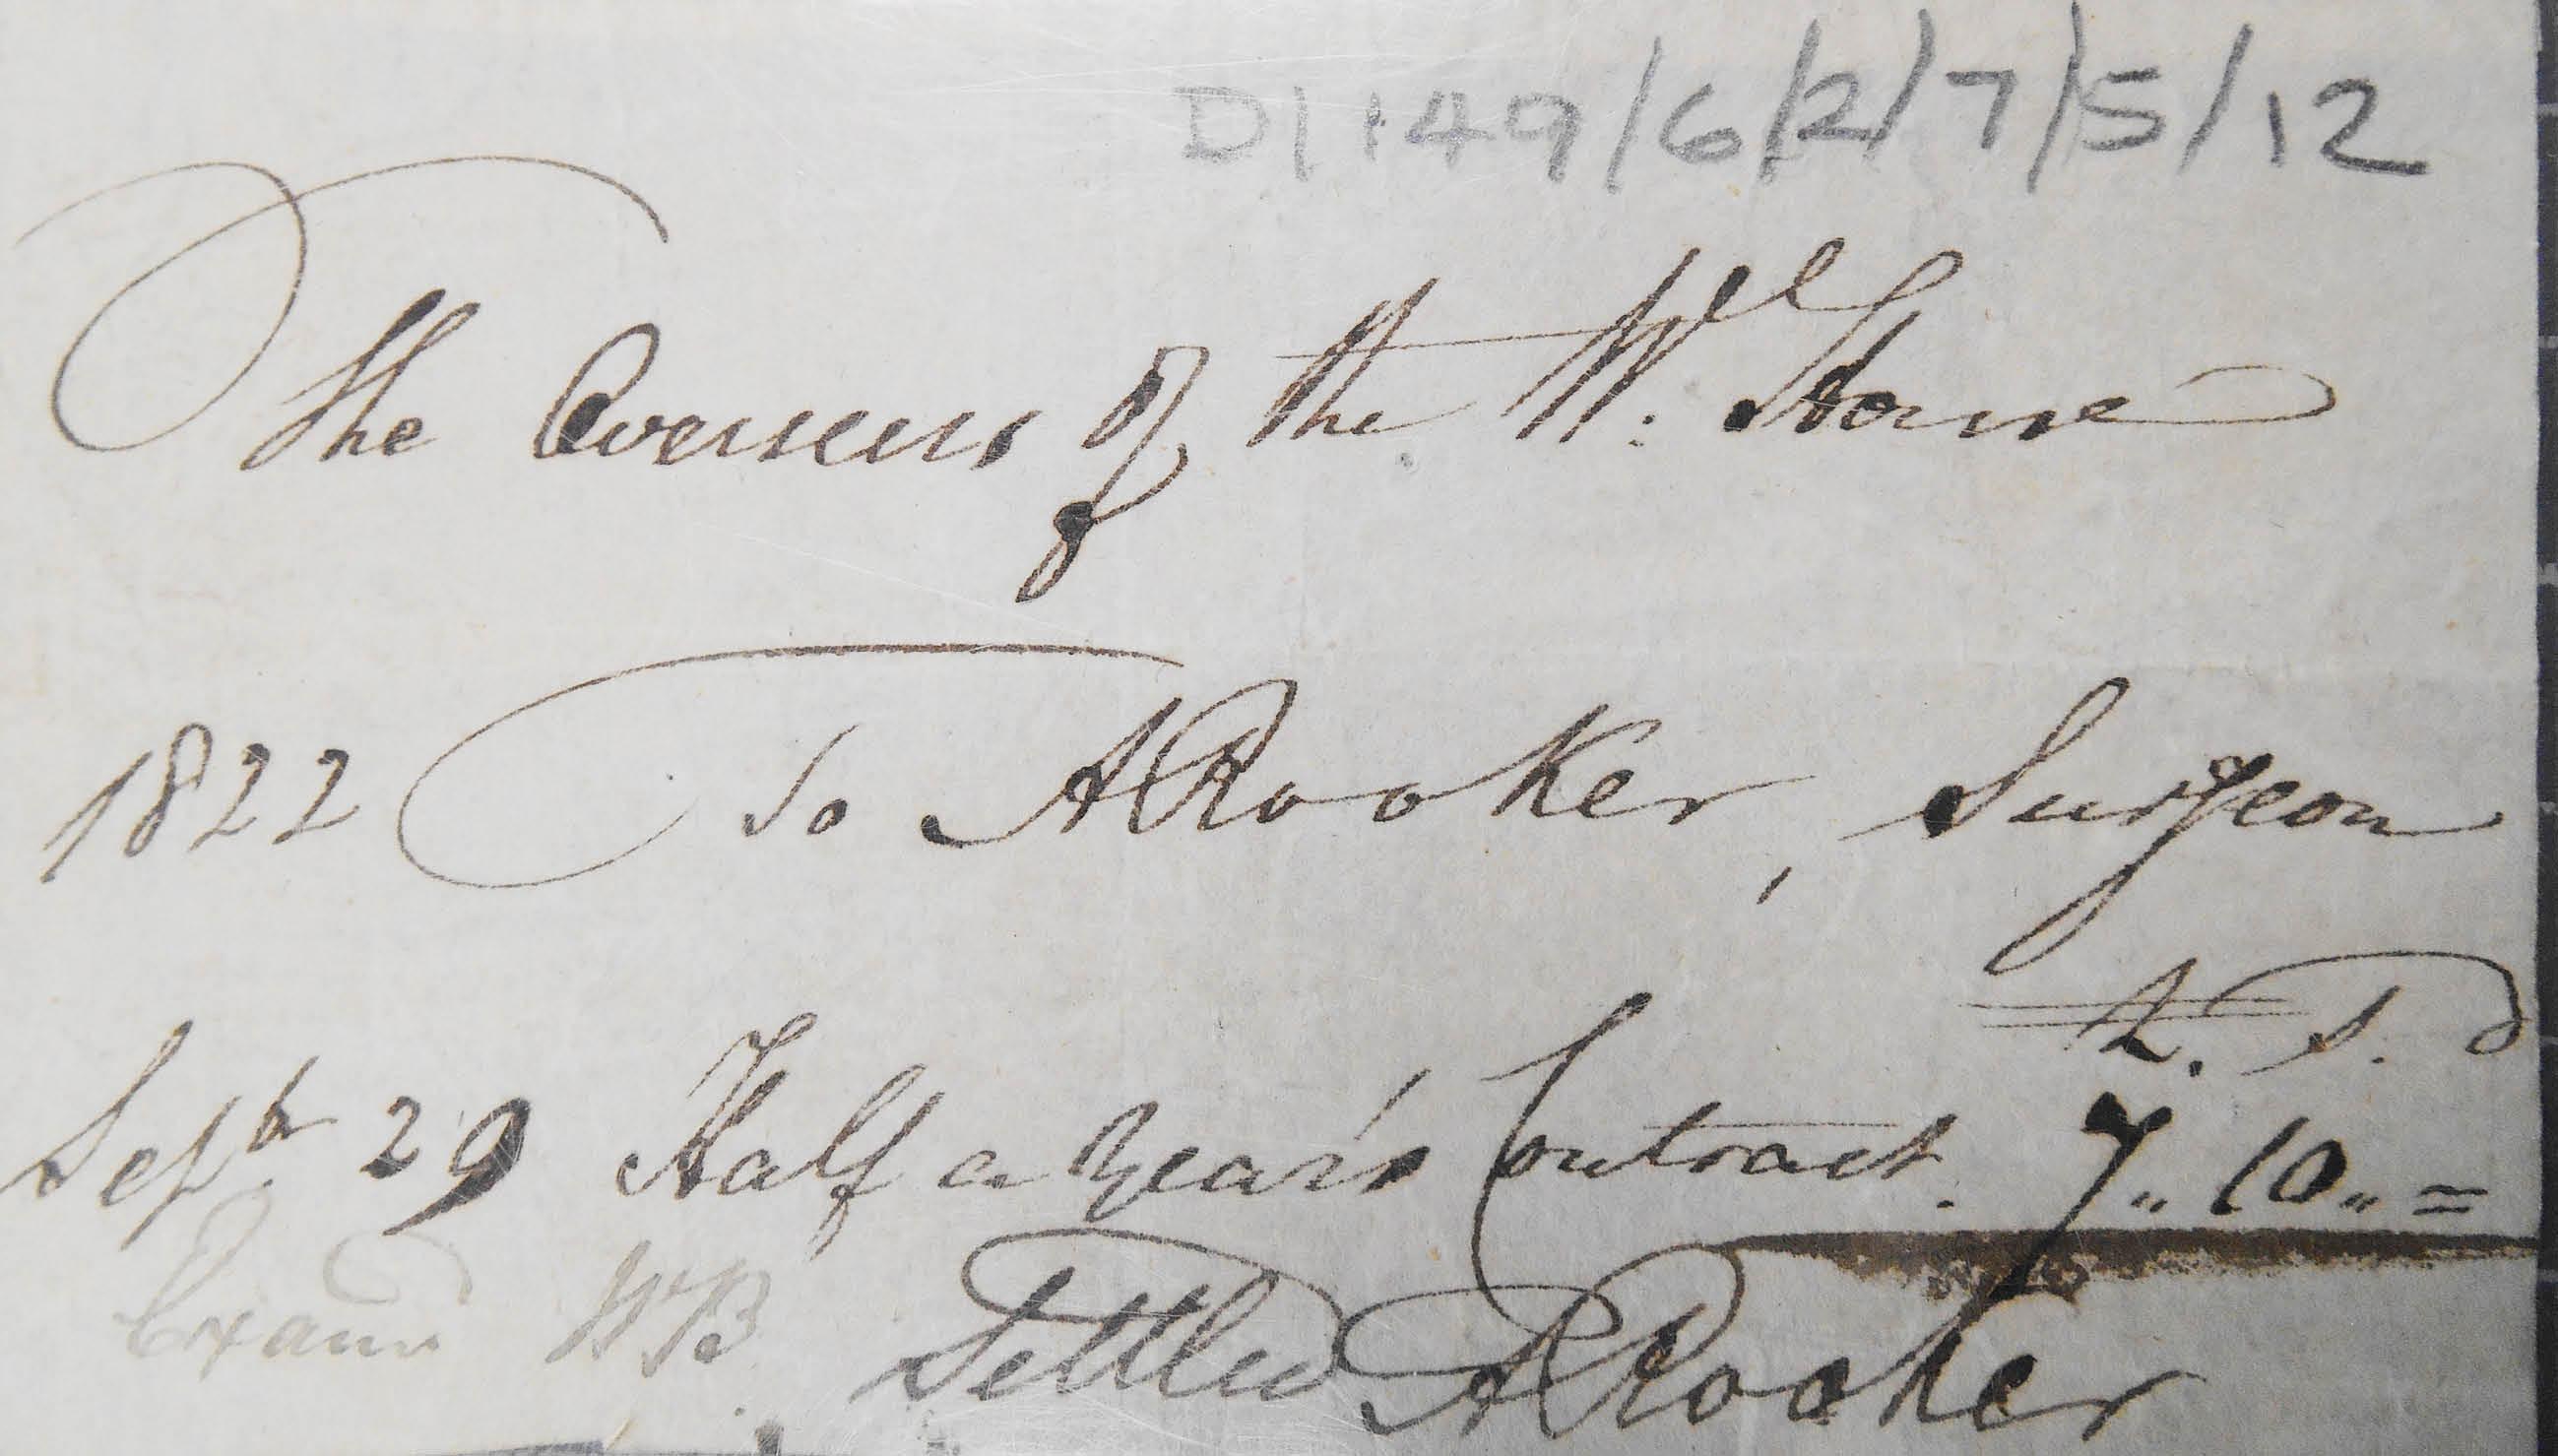 D1149/6/2/7/5/12
The Overseers of the W. House
1822 To A Rooker, Surgeon
£. S. D
Sepbr 29 Half a Year's Contract. 7,, 10,, =
Examd WB Settled A Rooker